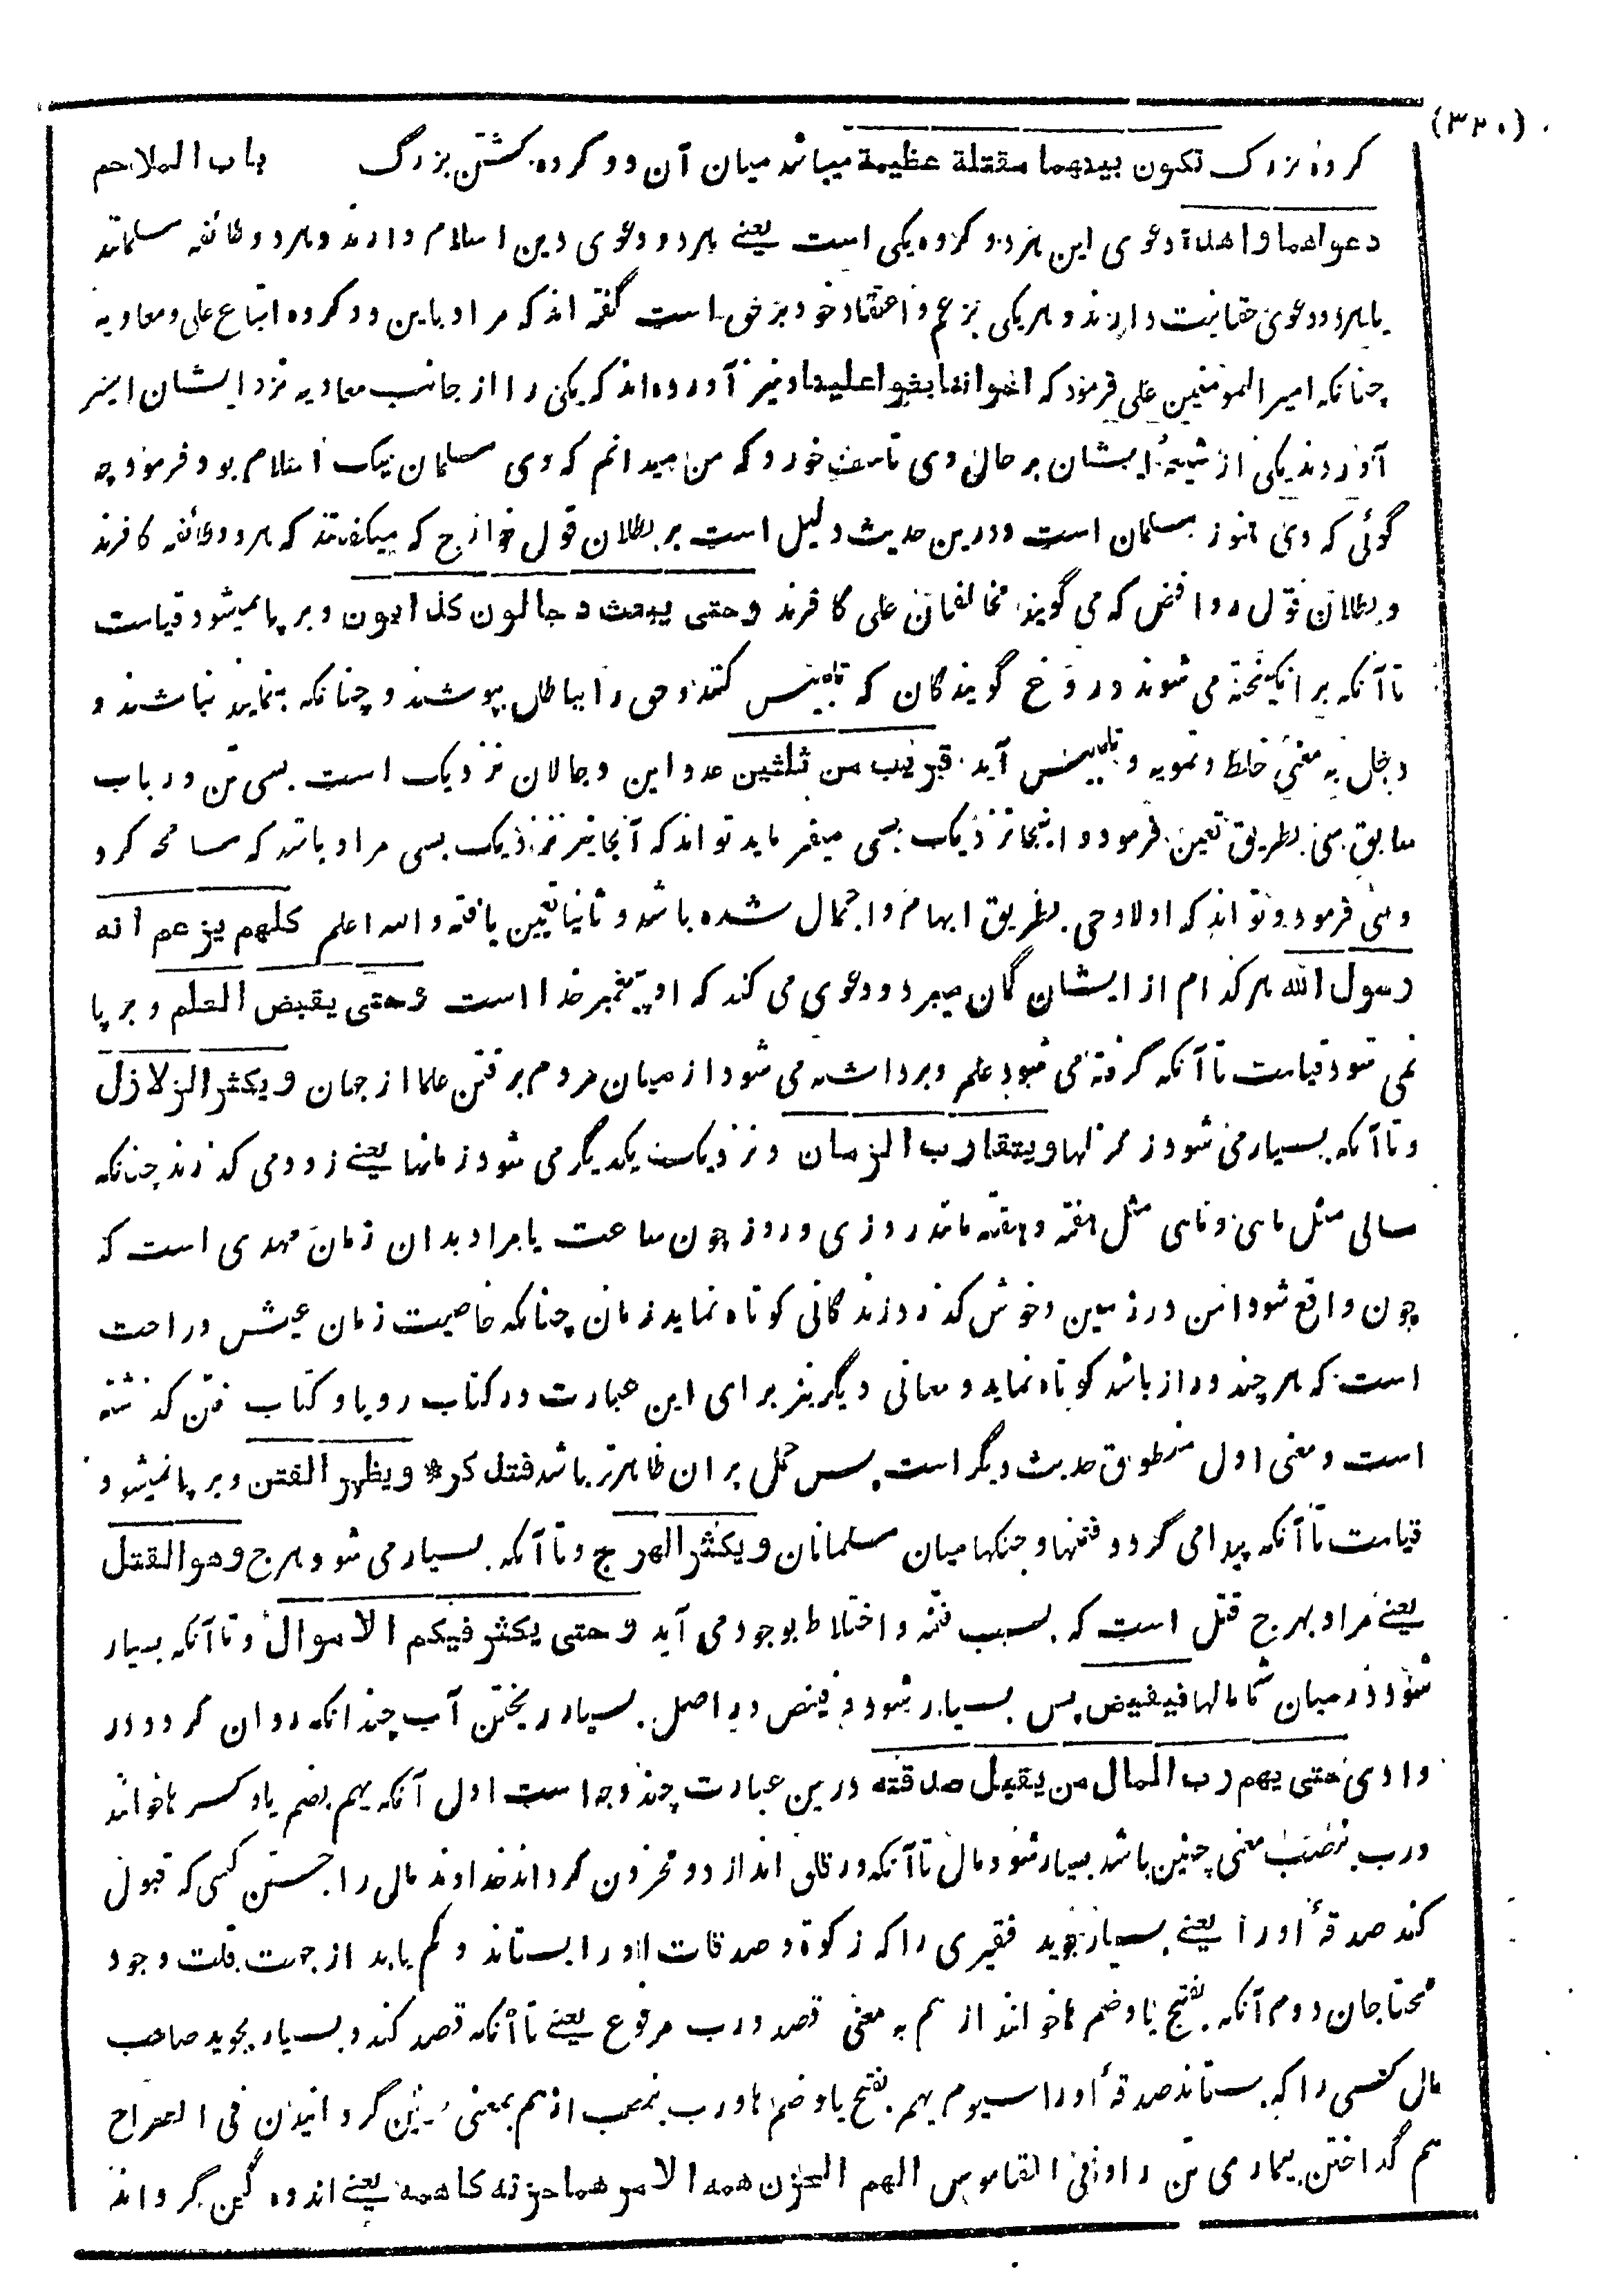 (۳۲۰)
گروه بزرگ تكون بينهما مقتلة عظيمة میباشد میان آن دو گروه کشتن بزرگ باب الملاحم
دعواهما واحدة دعوی این هر دو گروه یکی است یعنے هر دو دعوی دین اسلام دارند و هر دو طائفه مسلمانند
یا هر دو دعوی حقانیت دارند و هر یکی بزعم و اعتقاد خود بر حق است گفته اند که مراد باین دو گروه اتباع علی و معاویه
چنانکه امیر المومنین علی فرمود که اخواننا بغوا علینا و نیز آورده اند که یکی را از جانب معاویه نزد ایشان اسیر
آوردند یکی از شیعهٔ ایشان بر حال وی تاسف خورد که من میدانم که وی مسلمان نیک اسلام بود فرمود چه
گوئی که وی هنوز مسلمان است و درین حدیث دلیل است بر بطلان قول خوارج که میگفتند که هر دو طائفه کافرند
و بطلان قول روافض که می گویند مخالفان علی کافرند وحتى يبعث دجالون كذابون و برپا نمیشود قیامت
تا آنکه برانگیخته می شوند دروغ گویندگان که تلبیس کنند و حق را بباطل بپوشند و چنانکه نمایند نباشند و
دجل به معنی خلط و تمویه و تلبیس آید قريب من ثلثين عدد این دجالان نزدیک است بسی تن و در باب
سابق سی بطریق تعین فرمود و اینجا نزدیک بسی میفرماید تواند که آنجا نیز نزدیک بسی مراد باشد که مسامحه کرد
و سی فرمود و تواند که اولا وحی بطریق ابهام و اجمال شده باشد و ثانیا تعیین یافته و الله اعلم كلهم يزعم انه
رسول الله هر کدام از ایشان گمان میبرد و دعوی می کند که او پیغمبر خدا است وحتى يقبض العلم و برپا
نمی شود قیامت تا آنکه گرفته می شود علم و برداشته می شود از میان مردم برفتن علما از جهان ويكثر الزلازل
و تا آنکه بسیار می شود زلزلها ويتقارب الزمان و نزدیک یکدیگر می شود زمانها یعنے زود می گذرند چنانکه
سالی مثل ماهی و ماهی مثل هفته و هفته مانند روزی و روز چون ساعت یا مراد بدان زمان مهدی است که
چون واقع شود امن در زمین و خوش گذرد زندگانی کوتاه نماید زمان چنانکه خاصیت زمان عیش و راحت
است که هر چند دراز باشد کوتاه نماید و معانی دیگر نیز برای این عبارت در کتاب رویا و کتاب فتن گذشته
است و معنی اول منطوق حدیث دیگر است پس حمل بر ان ظاهرتر باشد فتدكره ويظهر الفتن و برپا نمیشود
قیامت تا آنکه پیدا می گردد فتنها و جنگها میان مسلمانان ويكثر الهرج و تا آنکه بسیار می شود هرج وهو القتل
یعنے مراد بهرج قتل است که بسبب فتنه و اختلاط بوجود می آید وحتى يكثر فيكم الاموال و تا آنکه بسیار
شود در میان شما مالها فيفيض پس بسیار شود و فیض در اصل بسیار ریختن آب چندانکه روان گردد در
وادی حتى يهم رب المال من يقبل صدقته درین عبارت چند وجه است اول آنکه یهم بضم یا و کسر ها خوانند
و رب بنصب معنی چنین باشد بسیار شود مال تا آنکه در قلق اندازد و محزون گرداند خداوند مالی را جستن کسی که قبول
کند صدقهٔ او را یعنے بسیار بجوید فقیری را که زکوة و صدقات او را بستاند و کم یابد از جهت قلت وجود
محتاجان دوم آنکه بفتح یا و ضم ها خوانند از هم به معنی قصد و رب مرفوع یعنے تا آنکه قصد کند و بسیار بجوید صاحب
مال کسی را که بستاند صدقهٔ او را سیوم یهم بفتح یا و ضم ها و رب بنصب از هم بمعنی گردانیدن فی الصراح
هم گداختن بیماری تن را و فی القاموس الهم الحزن همه الامر هما حزنه کاهمه یعنے اندوه گین گرداند